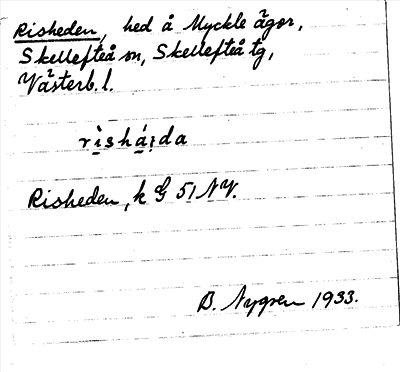 Risheden, hed å Myckle ägor,
Skellefteå sn, Skellefteå tg,
Västerb. l.
rìshá̱i̯da
Risheden, k G 51 NV.
B. Nygren 1933.